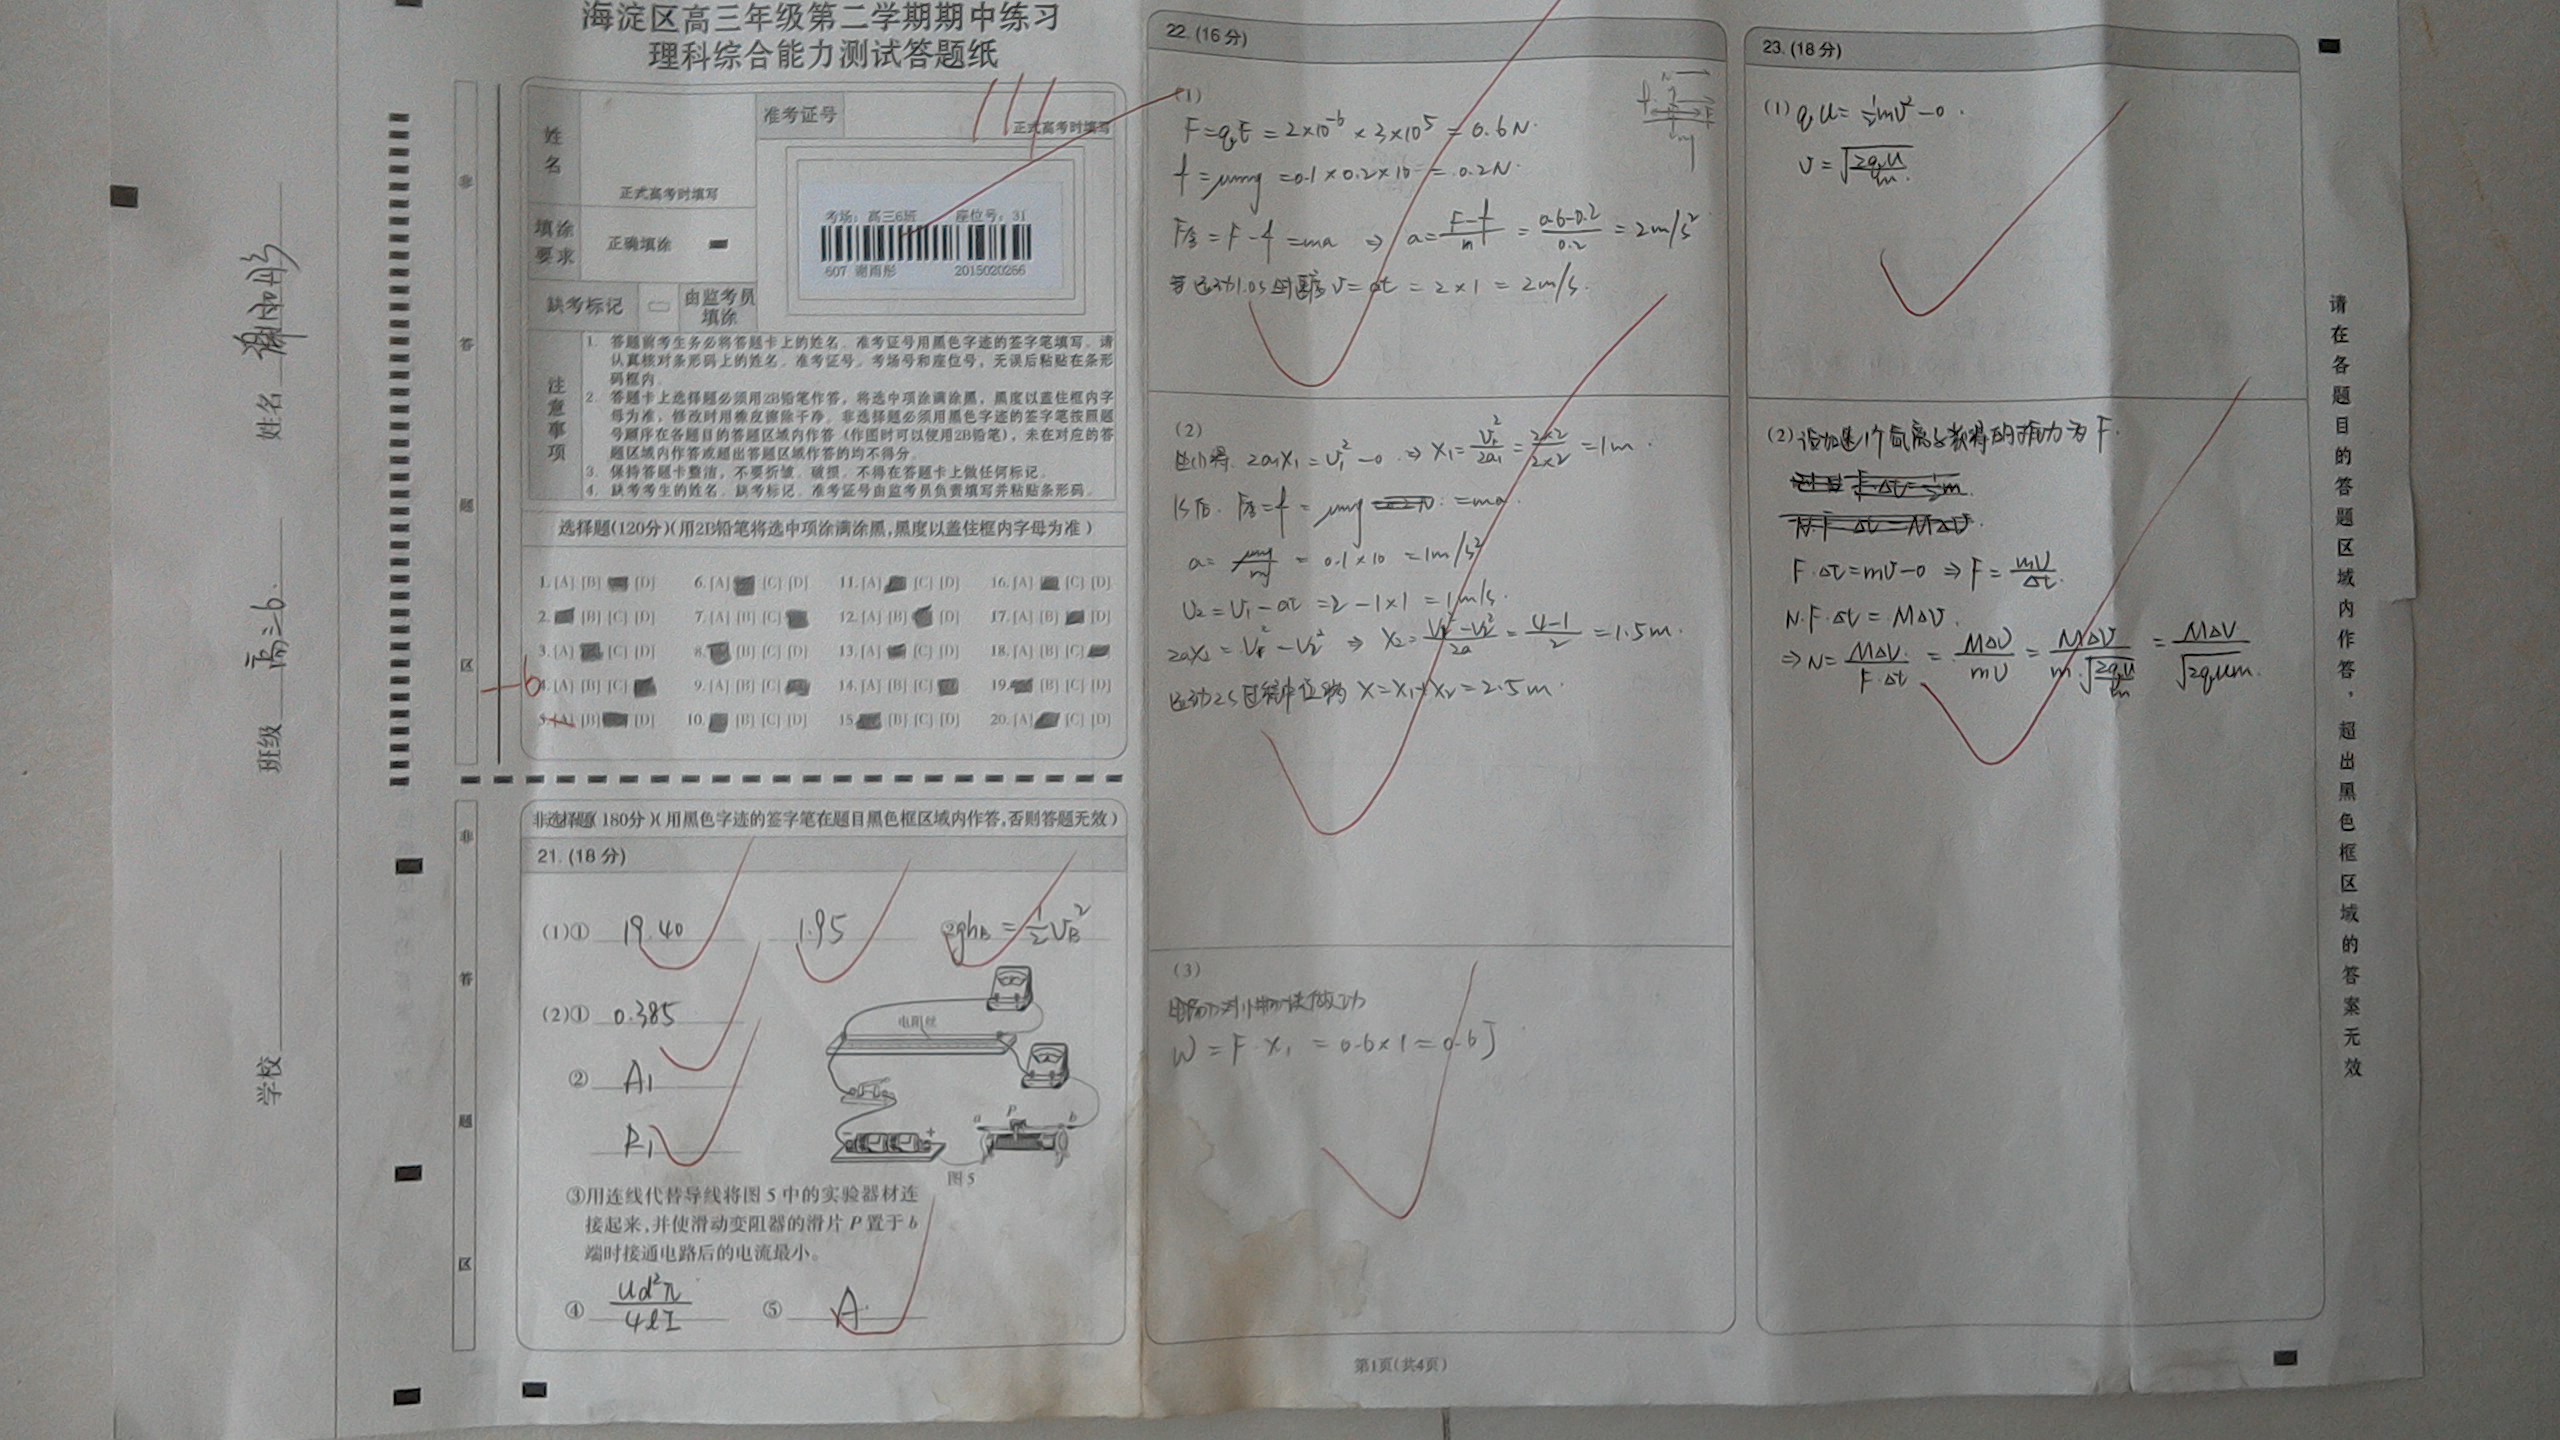 海淀区高三年级第二学期期中练习
理科综合能力测试答题纸
姓名
正式高考时填写
准考证号
正式高考时填写
111
填涂要求
正确填涂
考场：高三6班 座位号：31
607 谢雨彤 2015020266
缺考标记
由监考员填涂
注意事项
1. 答题前考生务必将答题卡上的姓名、准考证号用黑色字迹的签字笔填写。请
认真核对条形码上的姓名、准考证号、考场号和座位号，无误后粘贴在条形
码框内。
2. 答题卡上选择题必须用2B铅笔作答，将选中项涂满涂黑，黑度以盖住框内字
母为准，修改时用橡皮擦除干净。非选择题必须用黑色字迹的签字笔按照题
号顺序在各题目的答题区域内作答（作图时可以使用2B铅笔），未在对应的答
题区域内作答或超出答题区域作答的均不得分。
3. 保持答题卡整洁，不要折皱、破损。不得在答题卡上做任何标记。
4. 缺考考生的姓名、缺考标记、准考证号由监考员负责填写并粘贴条形码。
选择题(120分)(用2B铅笔将选中项涂满涂黑,黑度以盖住框内字母为准)
1. [A] [B] [D] 6. [A] [C] [D] 11. [A] [C] [D] 16. [A] [C] [D]
2. [B] [C] [D] 7. [A] [B] [C] 12. [A] [B] [D] 17. [A] [B] [D]
3. [A] [C] [D] 8. [B] [C] [D] 13. [A] [C] [D] 18. [A] [B] [C]
4. [A] [B] [C] 9. [A] [B] [C] 14. [A] [B] [C] 19. [B] [C] [D]
5. [A] [B] [D] 10. [B] [C] [D] 15. [B] [C] [D] 20. [A] [C] [D]
-6
非选择题(180分)(用黑色字迹的签字笔在题目黑色框区域内作答,否则答题无效)
21. (18分)
(1)① 19.40 1.95 ②ghB = ½vB²
(2)① 0.385
② A₁
R₁
电阻丝
a P b
图5
③用连线代替导线将图5中的实验器材连
接起来,并使滑动变阻器的滑片P置于b
端时接通电路后的电流最小。
④ Ud²π/4lI ⑤ A
22. (16分)
(1)
F=qE = 2×10⁻⁶ × 3×10⁵ = 0.6N.
f = μmg = 0.1×0.2×10 = 0.2N.
F合 = F-f = ma ⇒ a = (F-f)/m = (0.6-0.2)/0.2 = 2m/s²
v = at = 2×1 = 2m/s.
(2)
2a₁x₁ = v₁²-0 ⇒ x₁ = v₁²/2a₁ = 2×2/2×2 = 1m.
1s后. F合 = f = μmg = ma.
a = μmg/m = 0.1×10 = 1m/s²
v₂ = v₁-at = 2-1×1 = 1m/s.
2ax₂ = v₁²-v₂² ⇒ x₂ = (v₁²-v₂²)/2a = (4-1)/2 = 1.5m.
运动2s过程中位移 x = x₁+x₂ = 2.5m.
(3)
电场力对小物块做功
W = F·x₁ = 0.6×1 = 0.6J
23. (18分)
(1) qU = ½mv²-0.
v = √(2qU/m).
(2) 设加速1个氙离子获得的推力为F.
F·Δt = mv-0 ⇒ F = mv/Δt.
N·F·Δt = MΔv.
⇒ N = MΔv/F·Δt = MΔv/mv = MΔv/m·√(2qU/m) = MΔv/√(2qUm).
请在各题目的答题区域内作答，超出黑色框区域的答案无效
学校 班级 高三6. 姓名 谢雨彤
非答题区
非答题区
第1页(共4页)